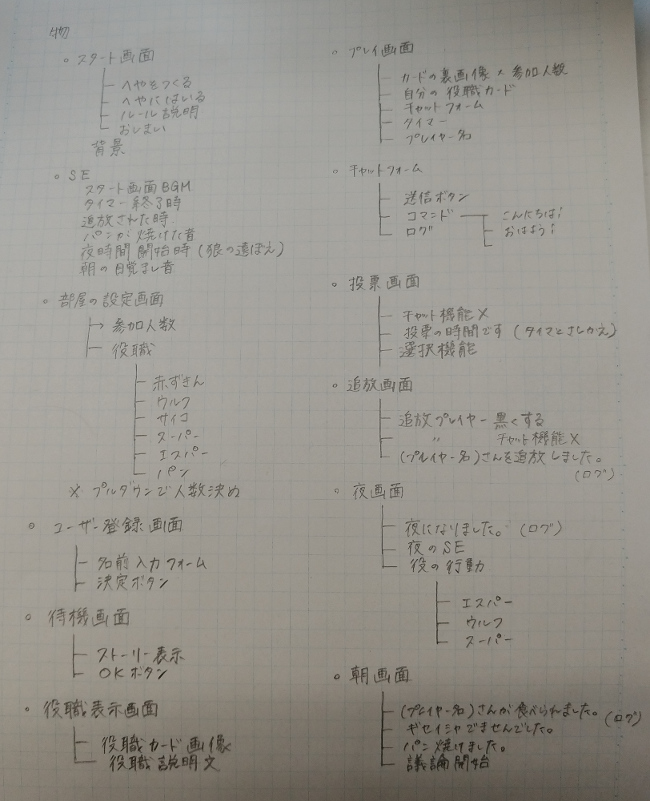 ・スタート画面
へやをつくる
へやにはいる
ルール説明
おしまい
背景
・SE
スタート画面BGM
タイマー終了時
追放された時
パンが焼けた音
夜時間開始時(狼の遠ぼえ)
朝の目覚まし音
・部屋の設定画面
→参加人数
役職
赤ずきん
ウルフ
サイコ
スーパー
エスパー
パン
※ プルダウンで人数決め
・ユーザー登録画面
名前入力フォーム
決定ボタン
・待機画面
ストーリー表示
OKボタン
・役職表示画面
役職カード画像
役職説明文
・プレイ画面
カードの裏画像×参加人数
自分の役職カード
チャットフォーム
タイマー
プレイヤー名
・チャットフォーム
送信ボタン
コマンド こんにちは!
ログ おはよう!
・投票画面
チャット機能×
投票の時間です(タイマとさしかえ)
選択機能
・追放画面
追放プレイヤー黒くする
〃 チャット機能×
(プレイヤー名)さんを追放しました。
(ログ)
・夜画面
夜になりました。(ログ)
夜のSE
役の行動
エスパー
ウルフ
スーパー
・朝画面
(プレイヤー名)さんが食べられました。(ログ)
ギセイシャでませんでした。
パン焼けました。
議論開始